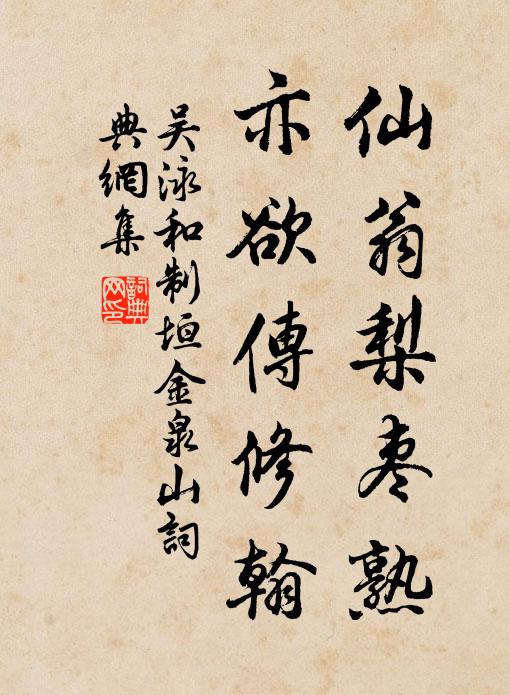 仙翁梨枣熟
亦欲傳修翰
吴泳和制垣金泉山詞
典網集
詞典网印